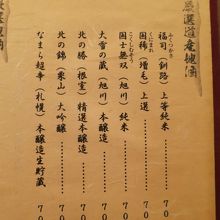 厳選道産地酒
福司（釧路）上等純米………70
ふくつかさ
国稀（増毛）上選………70
くにまれ
国士無双（旭川）純米………70
こくしむそう
大雪の蔵（旭川）本醸造………70
北の勝（根室）精選本醸造……70
北の錦（栗山）大吟醸………70
なまら超辛（札幌）本醸造生貯蔵　70